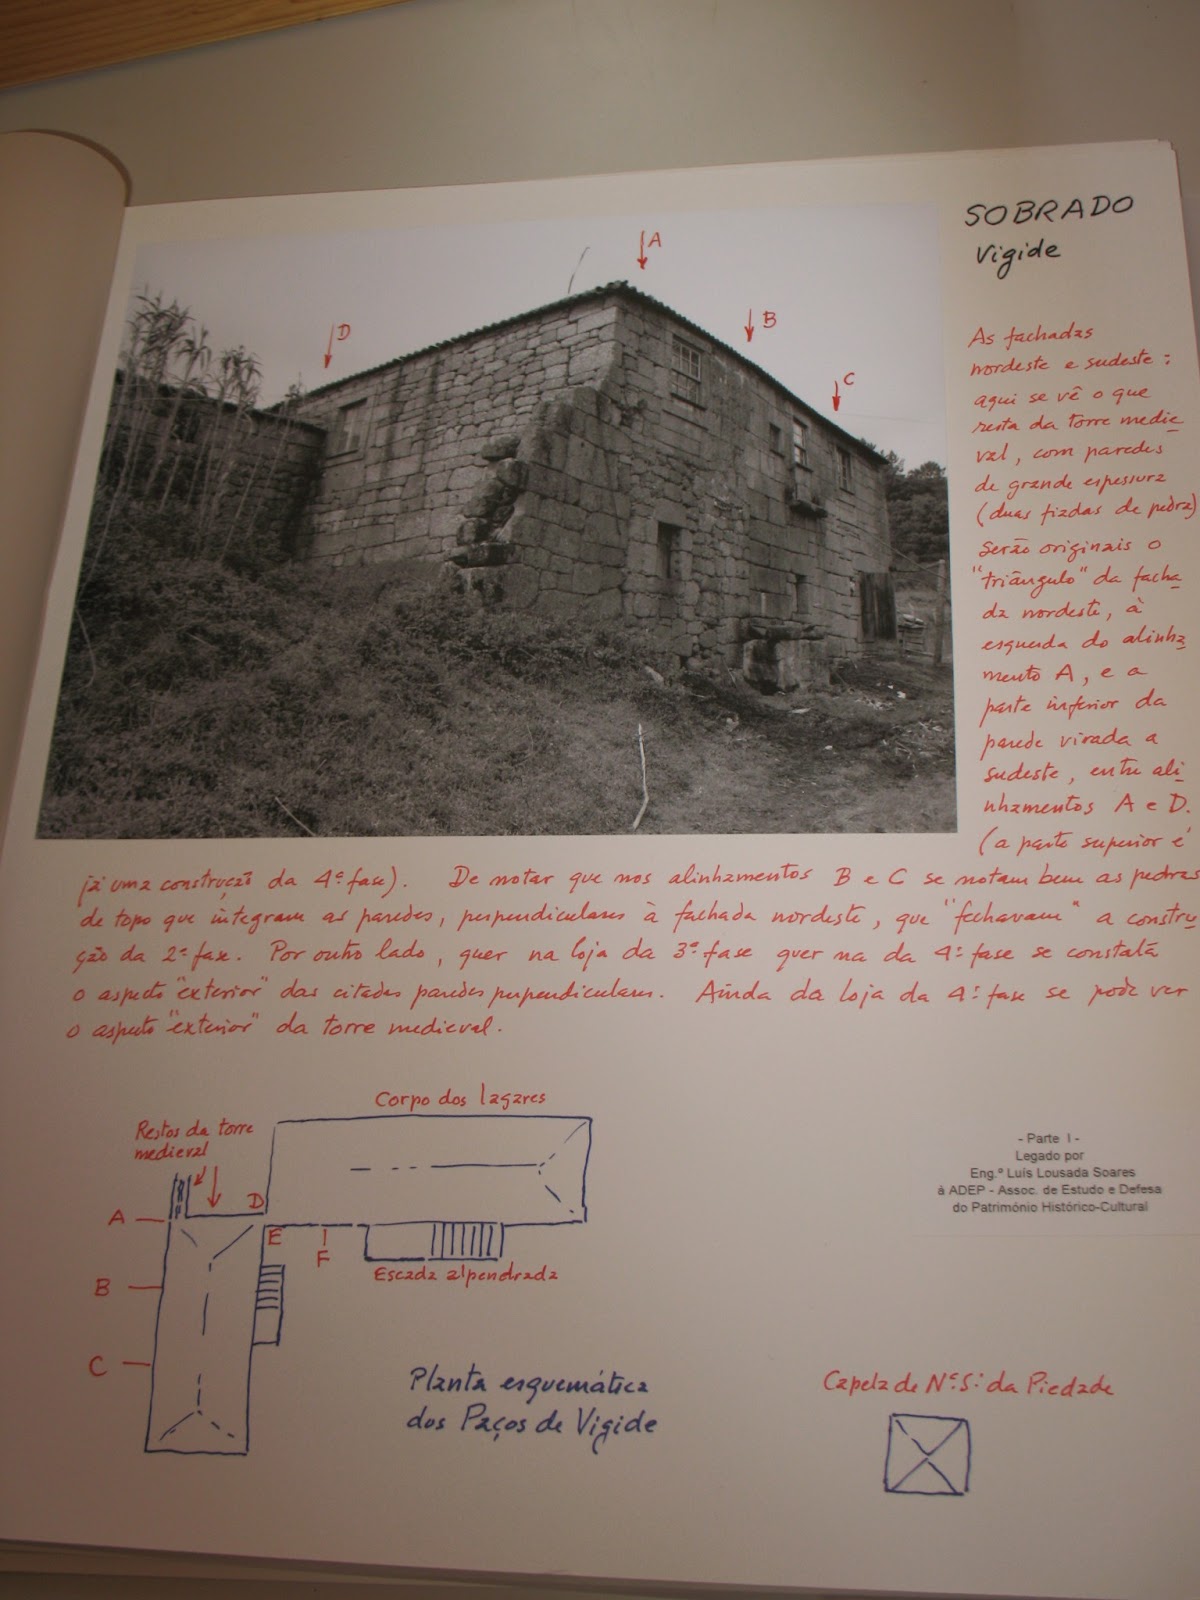 SOBRADO
Vigide
D
A
B
C
As fachadas
nordeste e sudeste :
aqui se vê o que
resta da torre medie
val, com paredes
de grande espessura
(duas fiadas de pedra)
Serão originais o
"triângulo" da facha
da nordeste, à
esquerda do alinha
mento A, e a
parte inferior da
parede virada a
sudeste, entre ali
nhamentos A e D.
(a parte superior é
já uma construção da 4ª fase). De notar que nos alinhamentos B e C se notam bem as pedras
de topo que integram as paredes, perpendiculares à fachada nordeste, que "fechavam" a constru
ção da 2ª fase. Por outro lado, quer na loja da 3ª fase quer na da 4ª fase se constatá
o aspecto "exterior" das citadas paredes perpendiculares. Ainda da loja da 4ª fase se pode ver
o aspecto "exterior" da torre medieval.
Corpo dos lagares
Restos da torre
medieval
D
A
E
F
B
Escada alpendrada
C
- Parte I -
Legado por
Eng.º Luís Lousada Soares
à ADEP - Assoc. de Estudo e Defesa
do Património Histórico-Cultural
Planta esquemática
dos Paços de Vigide
Capela de Nª Sª da Piedade